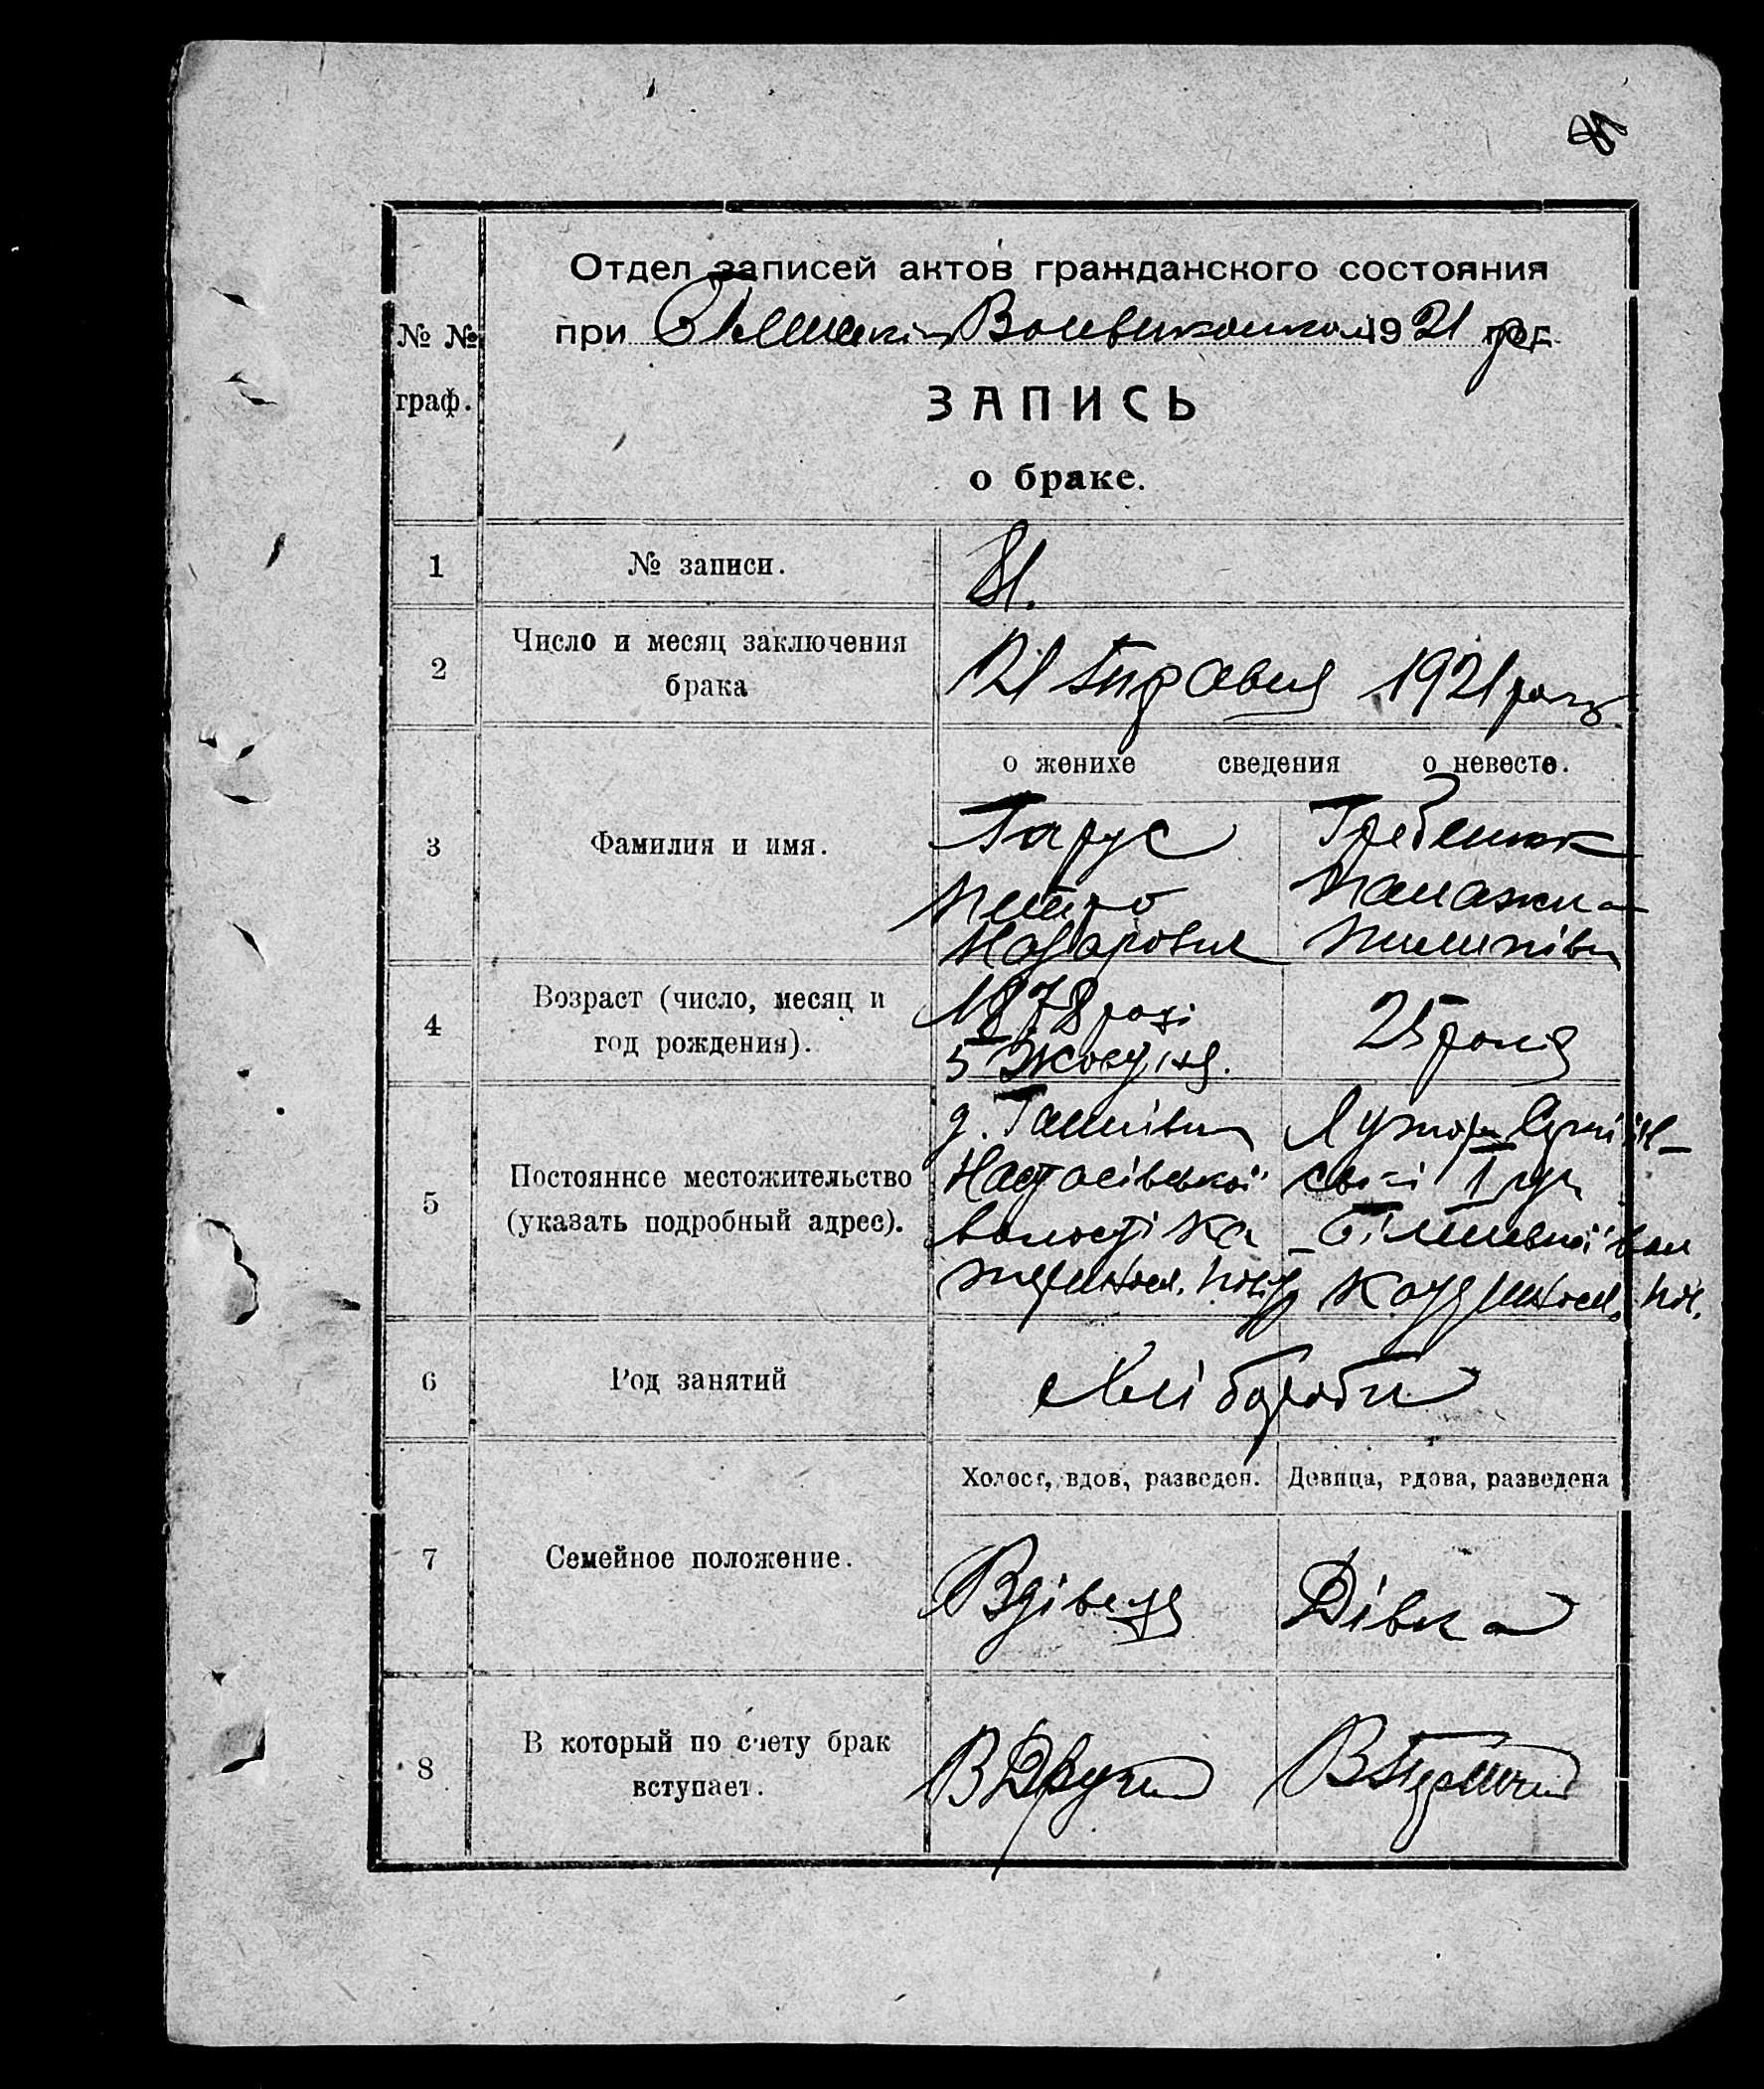 Отдел записей актов гражданского состояния
№ №
граф.
при Волвиконком 1921 рог.
ЗАПИСЬ
о браке.
1 № записи. 81.
2 Число и месяц заключения
брака
21 Травня 1921 року
о женихе сведения о невесте.
3 Фамилия и имя.
Гарус Гребенюк
Петро Палажка
Назарович Пилипівн
4 Возраст (число, месяц и
год рождения).
1878 році
5 Жовтня.
25 років
5 Постоянное местожительство
(указать подробный адрес).
д.
Настасівської
волості Ка
повіт
Більшевської вол
пов.
6 Род занятий
Хлібороби
Холост, вдов, разведен. Девица, вдова, разведена
7 Семейное положение.
Вдівець Дівка
8 В который по счету брак
вступает.
В Другий В Перший